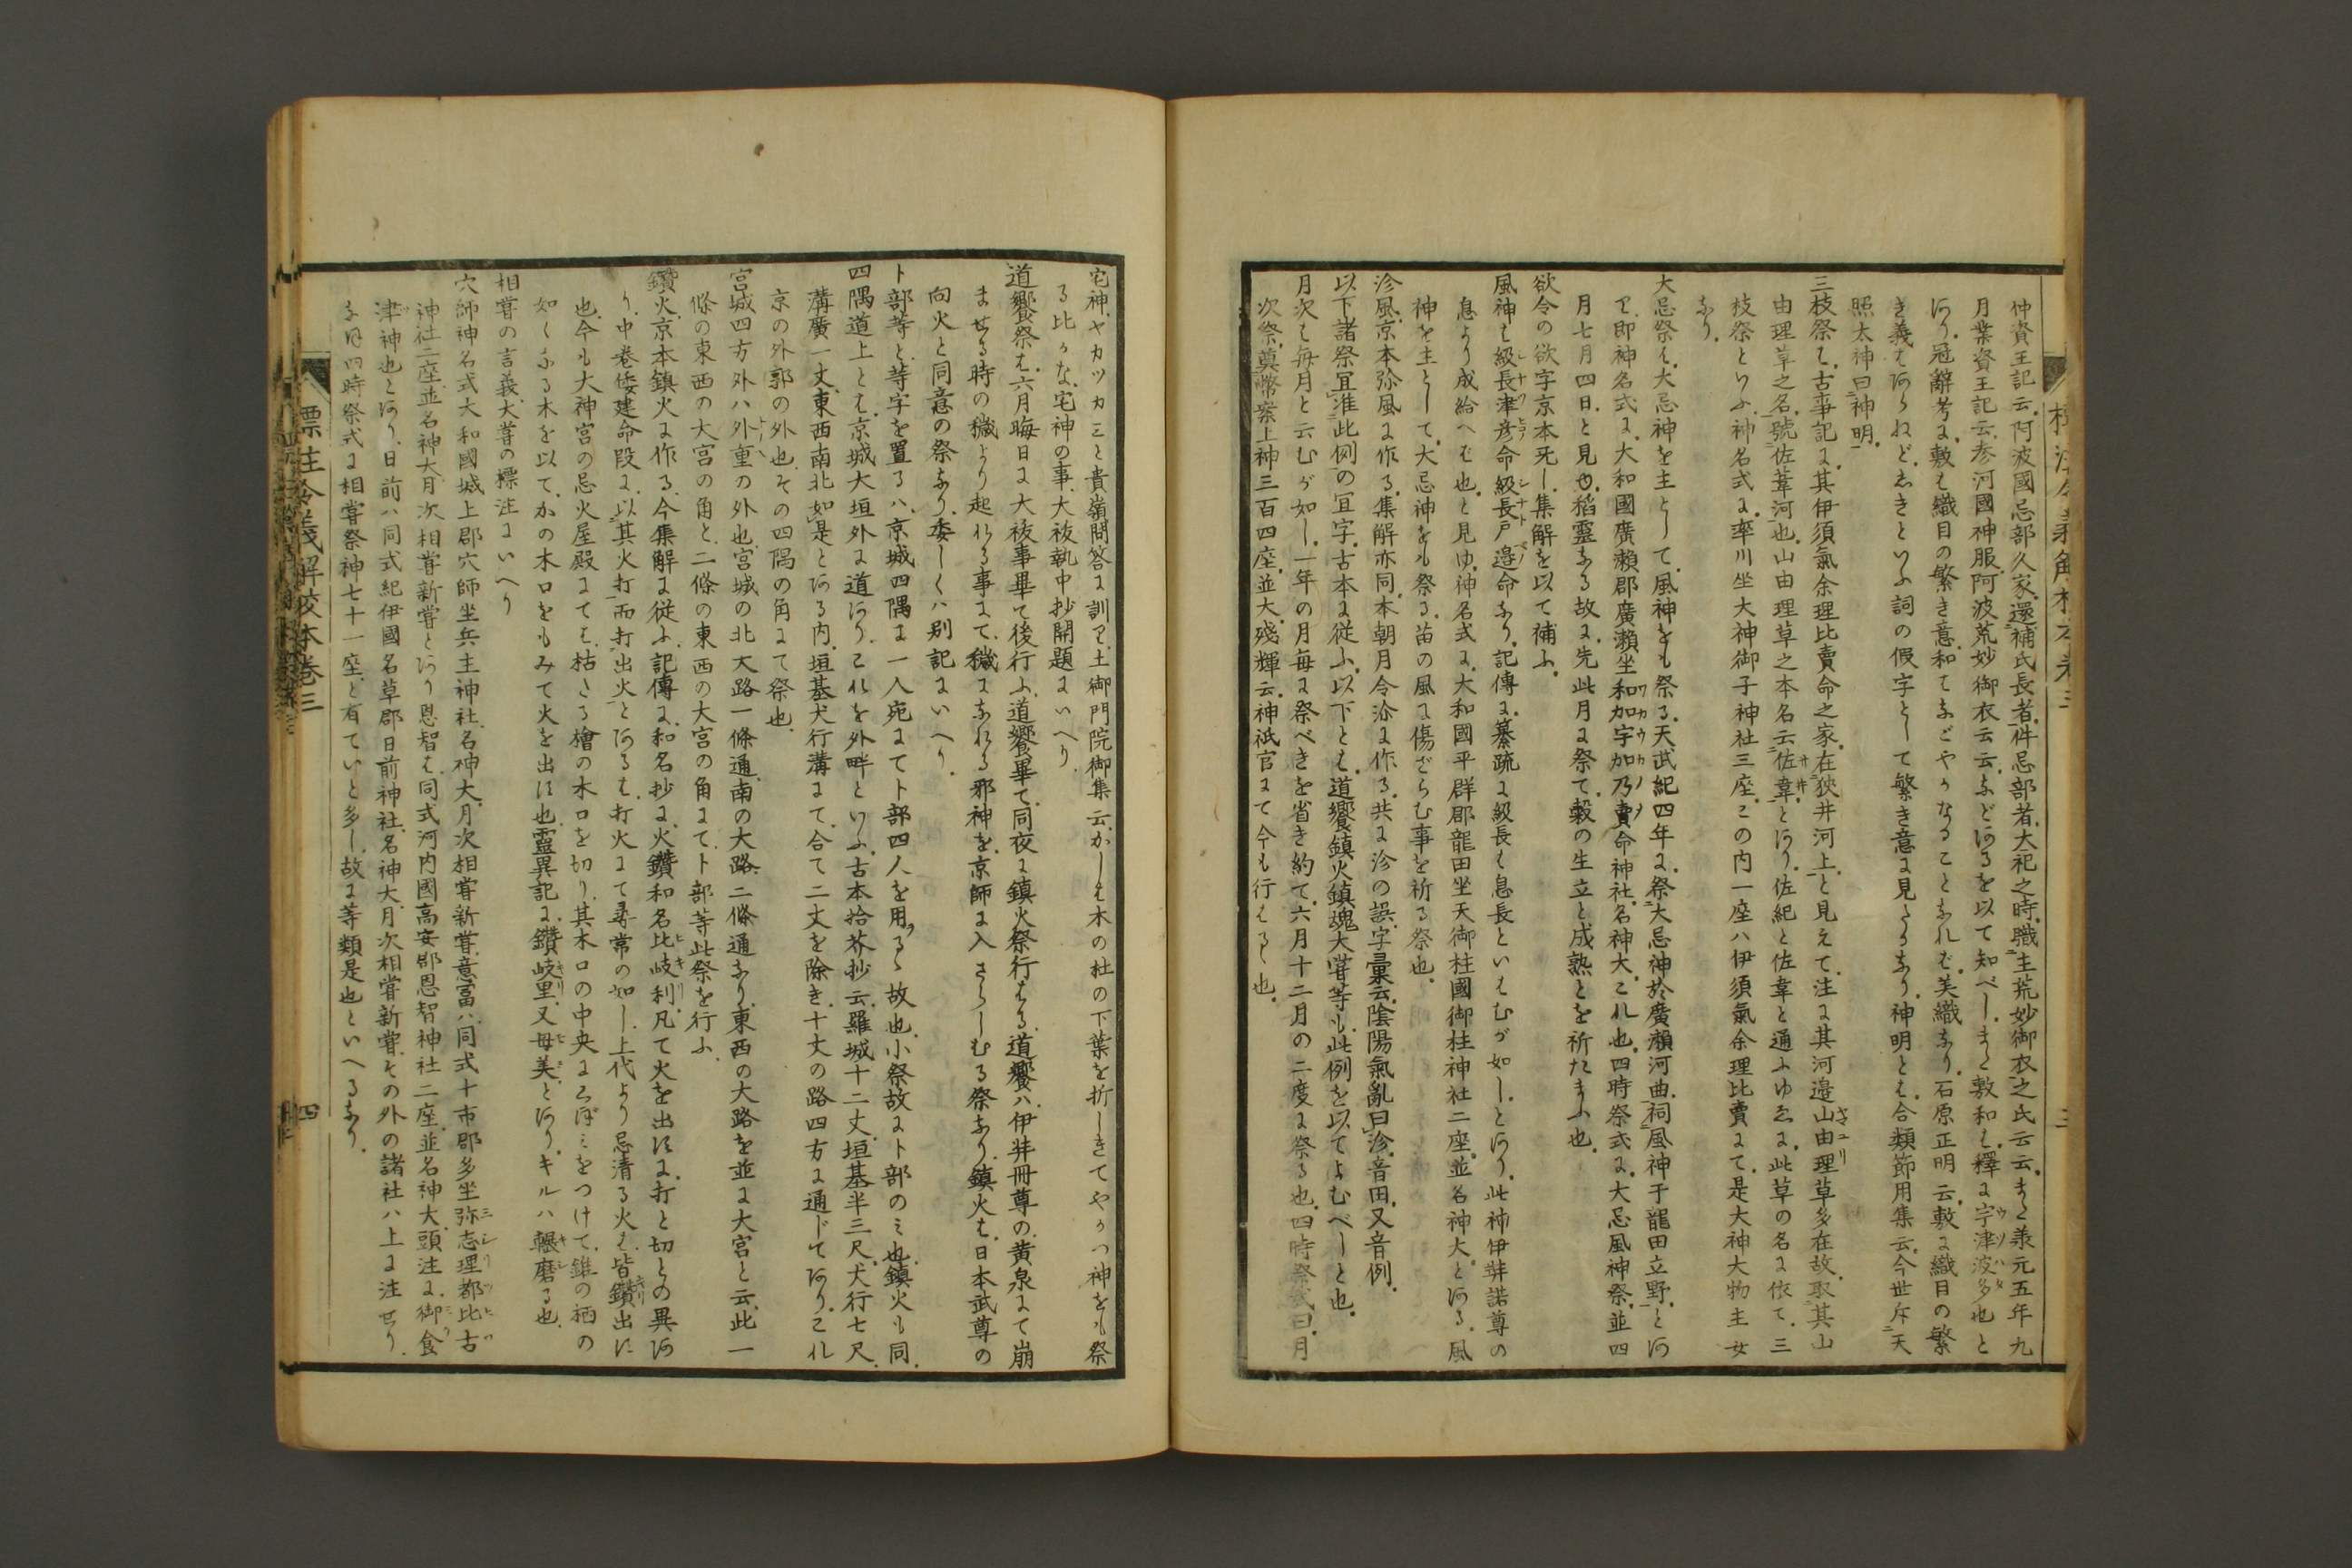 仲資王記云、阿波國忌部久家、還補氏長者、件忌部者、大祀之時、職主荒妙御衣之氏云云、また兼元五年九
月業資王記云、参河國神服、阿波荒妙御衣云云、などあるを以て知べし、また敷和は、釋に宇津波多也と
あり、冠辭考に、敷も織目の繁き意、和はなごやかなることなれば、美織なり、石原正明云、敷は織目の繁
き義はあらねど、しきといふ詞の假字として繁き意に見たるなり、神明とは、合類節用集云、今世斥天
照太神曰神明、
三枝祭は、古事記に、其伊須氣余理比賣命之家、在狹井河上、と見えて、注に其河邊山由理草多在、故取其山
由理草之名、號佐韋河也、山由理草之本名云佐韋、とあり、佐紀と佐韋と通ふゆゑに、此草の名に依て、三
枝祭といふ、神名式に、率川坐大神御子神社三座、この内一座ハ伊須氣余理比賣にて、是大神大物主女
なり、
大忌祭は、大忌神を主として、風神をも祭る、天武紀四年に、祭大忌神於廣瀬河曲、祠風神于龍田立野、とあ
り、即神名式に、大和國廣瀬郡廣瀬坐和加宇加乃賣命神社、名神大、これ也、四時祭式に、大忌風神祭、並四
月七月四日、と見ゆ、稻靈なる故に、先此月に祭て、穀の生立と成熟とを祈たまふ也、
欲令の欲字京本死し、集解を以て補ふ、
風神は級長津彦命級長戸邊命なり、記傳に、纂疏に級長は息長といはむが如し、とあり、此神伊弉諾尊の
息より成給へば也、と見ゆ、神名式に、大和國平群郡龍田坐天御柱國御柱神社二座、並名神大、とある、風
神を主として、大忌神をも祭る、苗の風に傷ざらむ事を祈る祭也、
沴風、京本弥風に作る、集解亦同、本朝月令沴に作る、共に沴の誤、字彙云、陰陽氣亂曰沴、音田、又音例、
以下諸祭宜准此例の宜字、古本に從ふ、以下とは、道饗鎮火鎮魂大嘗等も、此例を以てよむべしと也、
月次は毎月と云むが如し、一年の月毎に祭べきを省き約て、六月十二月の二度に祭る也、四時祭式曰、月
次祭、奠幣案上神三百四座、並大、殘輝云、神祇官にて今も行はる也、
標注令義解校本巻三
三
宅神、ヤカツカミと貴嶺問答に訓り、土御門院御集云、かしは木の杜の下葉を折しきてやかつ神をも祭
る比かな、宅神の事、大祓執中抄開題にいへり、
道饗祭は、六月晦日に大祓事畢て後行ふ、道饗畢て、同夜に鎮火祭行はる、道饗ハ伊弉冊尊の黄泉にて崩
ませる時の穢より起れる事にて、穢になれる邪神を、京師に入さらしむる祭なり、鎮火は、日本武尊の
向火と同意の祭なり、委しくハ別記にいへり、
卜部等と等字を置るハ、京城四隅に一人宛にて卜部四人を用る故也、小祭故に卜部のミ也、鎮火も同、
四隅道上とは、京城大垣外に道あり、これを外畔といふ、古本拾芥抄云、羅城十二丈、垣基半三尺、犬行七尺、
溝廣一丈、東西南北如是とある内、垣基犬行溝にて、合て二丈を除き、十丈の路四方に通じてあり、これ
京の外郭の外也、その四隅の角にて祭也、
宮城四方外ハ外重の外也、宮城の北大路一條通、南の大路二條通なり、東西の大路を並に大宮と云、此一
條の東西の大宮の角と、二條の東西の大宮の角にて、卜部等此祭を行ふ、
鑽火、京本鎮火に作る、今集解に從ふ、記傳に、和名抄に、火鑽和名比岐利、凡て火を出すに、打と切との異あ
り、中巻倭建命段に、以其火打而打出火とあるは、打火にて尋常の如し、上代より忌清る火は、皆鑽出す
也、今も大神宮の忌火屋殿にては、枯たる檜の木口を切り、其木口の中央にくぼミをつけて、錐の栖の
如くなる木を以て、かの木口をもみて火を出す也、靈異記に、鑽岐里、又母美、とあり、キルハ輾磨る也、
相嘗の言義、大嘗の標注にいへり
穴師神名式大和國城上郡穴師坐兵主神社、名神大、月次相嘗新嘗、意冨ハ、同式十市郡多坐弥志理都比古
神社二座、並名神大、月次相嘗新嘗とあり、恩智は、同式河内國高安郡恩智神社二座、並名神大、頭注に、御食
津神也とあり、日前ハ同式紀伊國名草郡日前神社、名神大、月次相嘗新嘗、その外の諸社ハ上に注せり、
なほ四時祭式に相嘗祭神七十一座、と有ていと多し、故に等類是也といへるなり、
標注令義解校本巻三
四